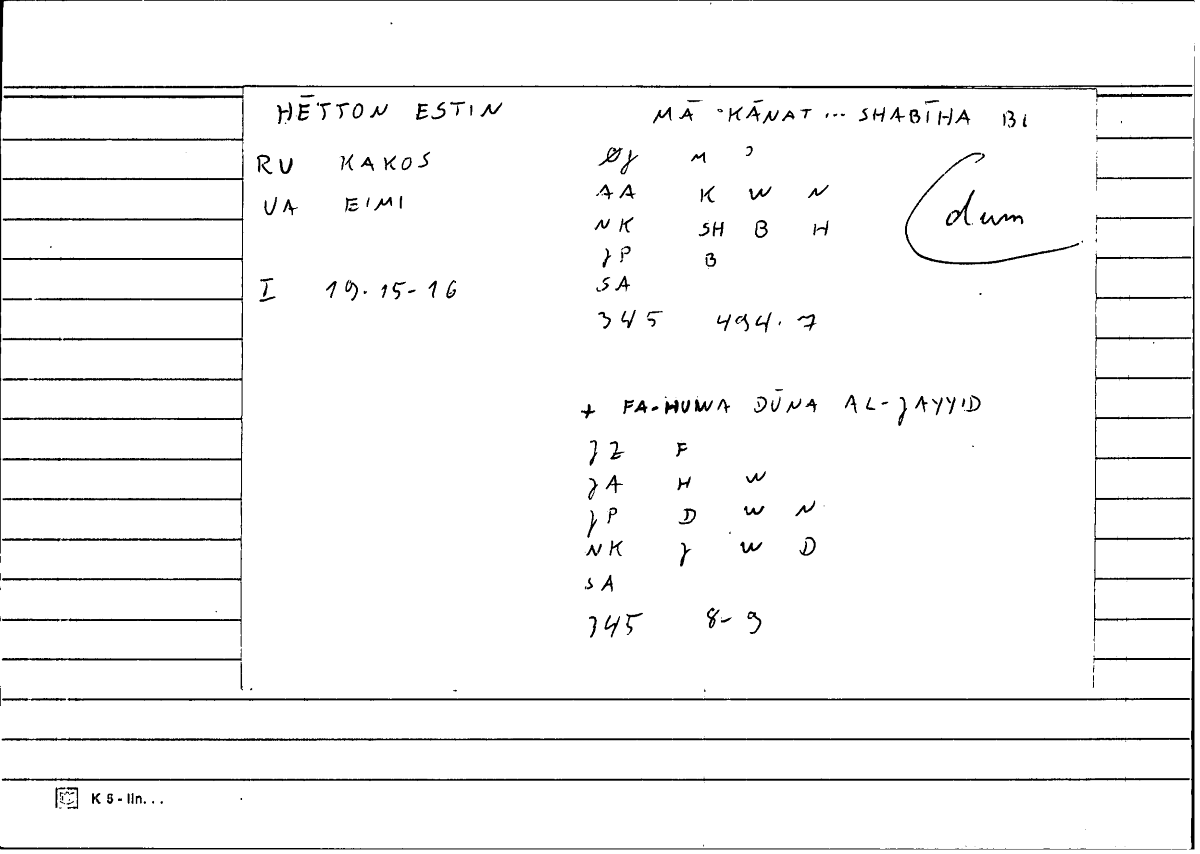 HĒTTON ESTIN
RU KAKOS
UA EIMI
I 19.15-16
MĀ KĀNAT ... SHABĪHA BI
ØJ M ʾ
AA K W N
NK SH B H
JP B
SA
345 494.7
dum
+ FA-HUWA DŪNA AL-JAYYID
JZ F
JA H W
JP D W N
NK J W D
SA
345 8-9
K 5 - lin...